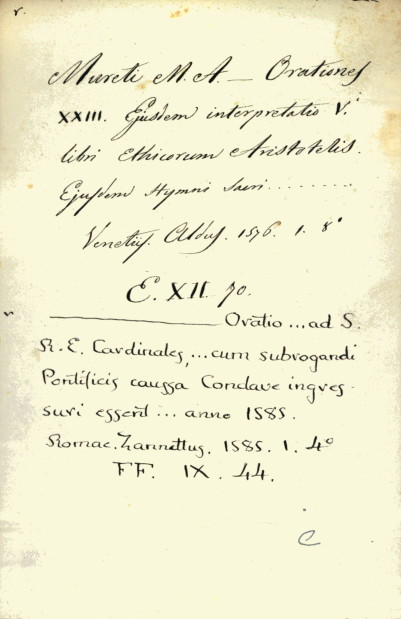 v.
Mureti M. A. — Orationes
XXIII. Ejusdem interpretatio V.
libri Ethicorum Aristotelis.
Ejusdem Hymni Sacri.........
Venetiis. Aldus. 1576. 1. 8°
E. XII. 70.
v
———— Oratio ... ad S.
R. E. Cardinales, ... cum subrogandi
Pontificis caussa Conclave ingres-
suri essent ... anno 1585.
Romae. Zannettus. 1585. 1. 4°
FF. IX. 44.
C